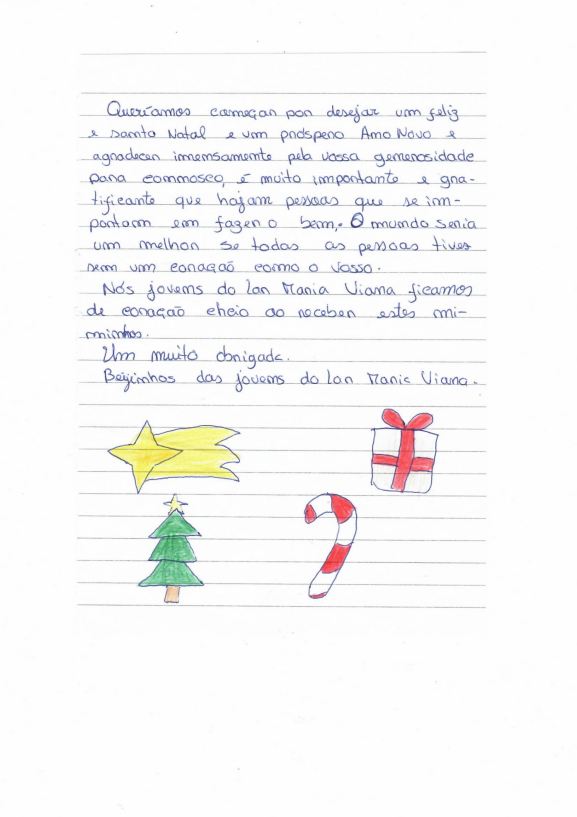 Queríamos começar por desejar um feliz
e santo Natal e um próspero Ano Novo e
agradecer imensamente pela vossa generosidade
para connosco, é muito importante e gra-
tificante que hajam pessoas que se im-
portam em fazer o bem. O mundo seria
um melhor se todas as pessoas tives
sem um coração como o vosso.
Nós jovens do Lar Maria Viana ficamos
de coração cheio ao receber estes mi-
miminhos.
Um muito obrigada.
Beijinhos das jovens do Lar Maria Viana.